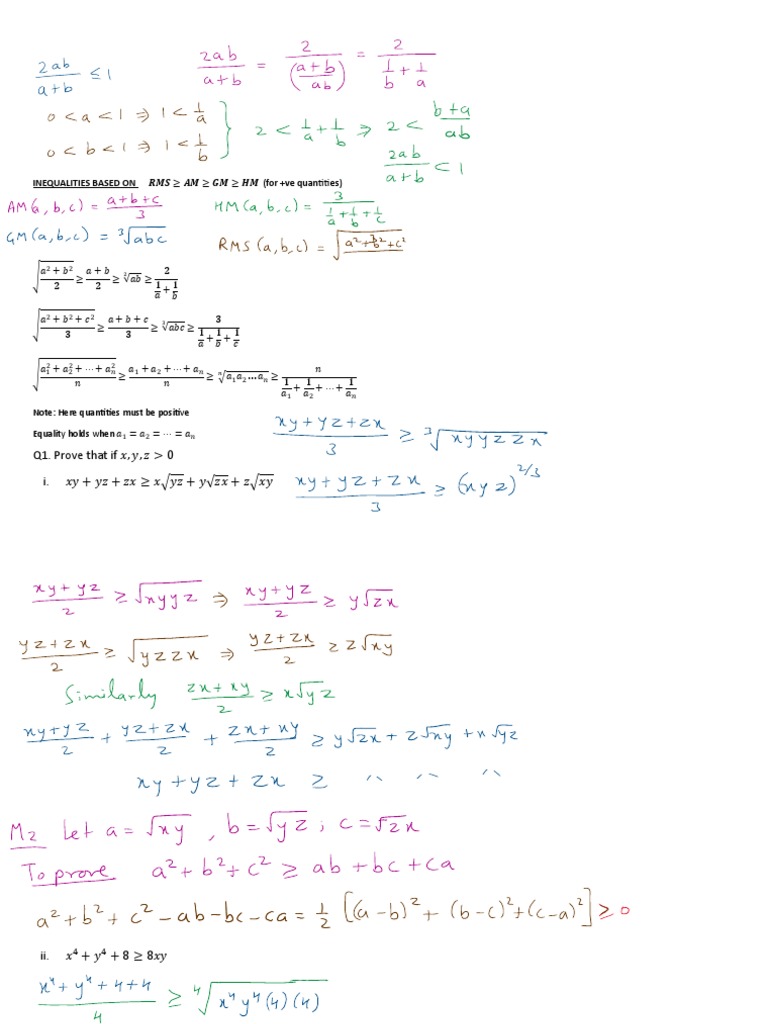 2ab/(a+b) ≤ 1    2ab/(a+b) = 2/((a+b)/ab) = 2/(1/b + 1/a)
0 < a < 1 ⇒ 1 < 1/a
0 < b < 1 ⇒ 1 < 1/b } 2 < 1/a + 1/b ⇒ 2 < (b+a)/ab
2ab/(a+b) < 1
INEQUALITIES BASED ON RMS ≥ AM ≥ GM ≥ HM (for +ve quantities)
AM(a, b, c) = (a+b+c)/3    HM(a, b, c) = 3/(1/a + 1/b + 1/c)
GM(a, b, c) = ∛(abc)    RMS(a, b, c) = √((a²+b²+c²)/3)
√((a² + b²)/2) ≥ (a + b)/2 ≥ ²√(ab) ≥ 2/(1/a + 1/b)
√((a² + b² + c²)/3) ≥ (a + b + c)/3 ≥ ³√(abc) ≥ 3/(1/a + 1/b + 1/c)
√((a₁² + a₂² + ⋯ + aₙ²)/n) ≥ (a₁ + a₂ + ⋯ + aₙ)/n ≥ ⁿ√(a₁a₂ … aₙ) ≥ n/(1/a₁ + 1/a₂ + ⋯ + 1/aₙ)
Note: Here quantities must be positive
Equality holds when a₁ = a₂ = ⋯ = aₙ
(xy+yz+zx)/3 ≥ ³√(xyyzzx)
Q1. Prove that if x, y, z > 0
i. xy + yz + zx ≥ x√yz + y√zx + z√xy
(xy+yz+zx)/3 ≥ (xyz)^(2/3)
(xy+yz)/2 ≥ √(xyyz) ⇒ (xy+yz)/2 ≥ y√zx
(yz+zx)/2 ≥ √(yzzx) ⇒ (yz+zx)/2 ≥ z√xy
Similarly (zx+xy)/2 ≥ x√yz
(xy+yz)/2 + (yz+zx)/2 + (zx+xy)/2 ≥ y√zx + z√xy + x√yz
xy+yz+zx ≥ " " "
M2 Let a = √xy , b = √yz ; c = √zx
To prove a²+b²+c² ≥ ab+bc+ca
a²+b²+c²-ab-bc-ca = 1/2 [(a-b)²+ (b-c)²+(c-a)²] ≥ 0
ii. x⁴ + y⁴ + 8 ≥ 8xy
(x⁴+y⁴+4+4)/4 ≥ ⁴√(x⁴y⁴(4)(4))